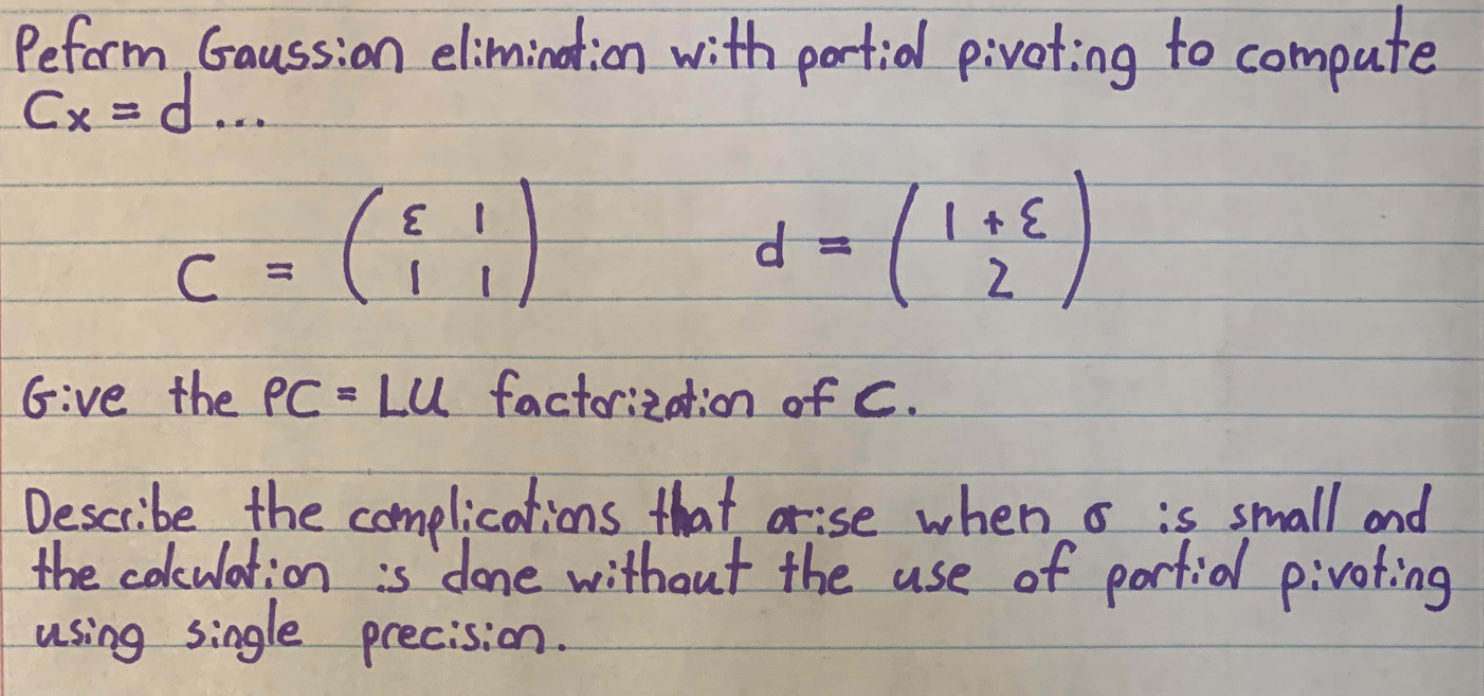 Peform Gaussian elimination with partial pivoting to compute
Cx = d ...
C = ( ε 1 ; 1 1 ) d = ( 1 + ε ; 2 )
Give the PC = LU factorization of C.
Describe the complications that arise when σ is small and
the calculation is done without the use of partial pivoting
using single precision.